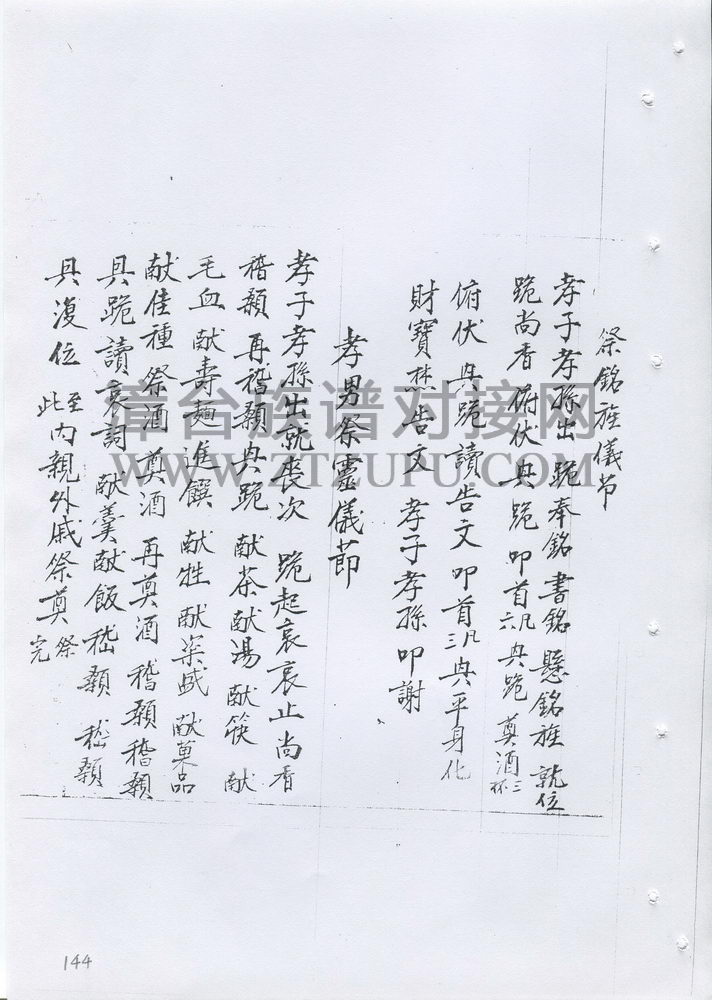 祭銘旌儀节
孝子孝孫出 跪奉銘 書銘 懸銘旌 就位
跪尚香 俯伏 興跪 叩首凡六 興跪 奠酒三杯
俯伏 興跪 讀告文 叩首凡三 興平身化
財寶 焚告文 孝子孝孫叩謝
孝男祭靈儀節
孝子孝孫出就喪次 跪起哀哀止尚香
稽顙 再稽顙 興跪 献茶献湯 献筷 献
毛血 献寿麺 進饌 献牲 献粢盛 献菓品
献佳種 祭酒 奠酒 再奠酒 稽顙稽顙
興跪讀哀詞 献羹献飯 嵇顙 嵇顙
興復位 至此内親外戚祭奠 祭完
章台族谱对接网
WWW.ZTZUPU.COM
144